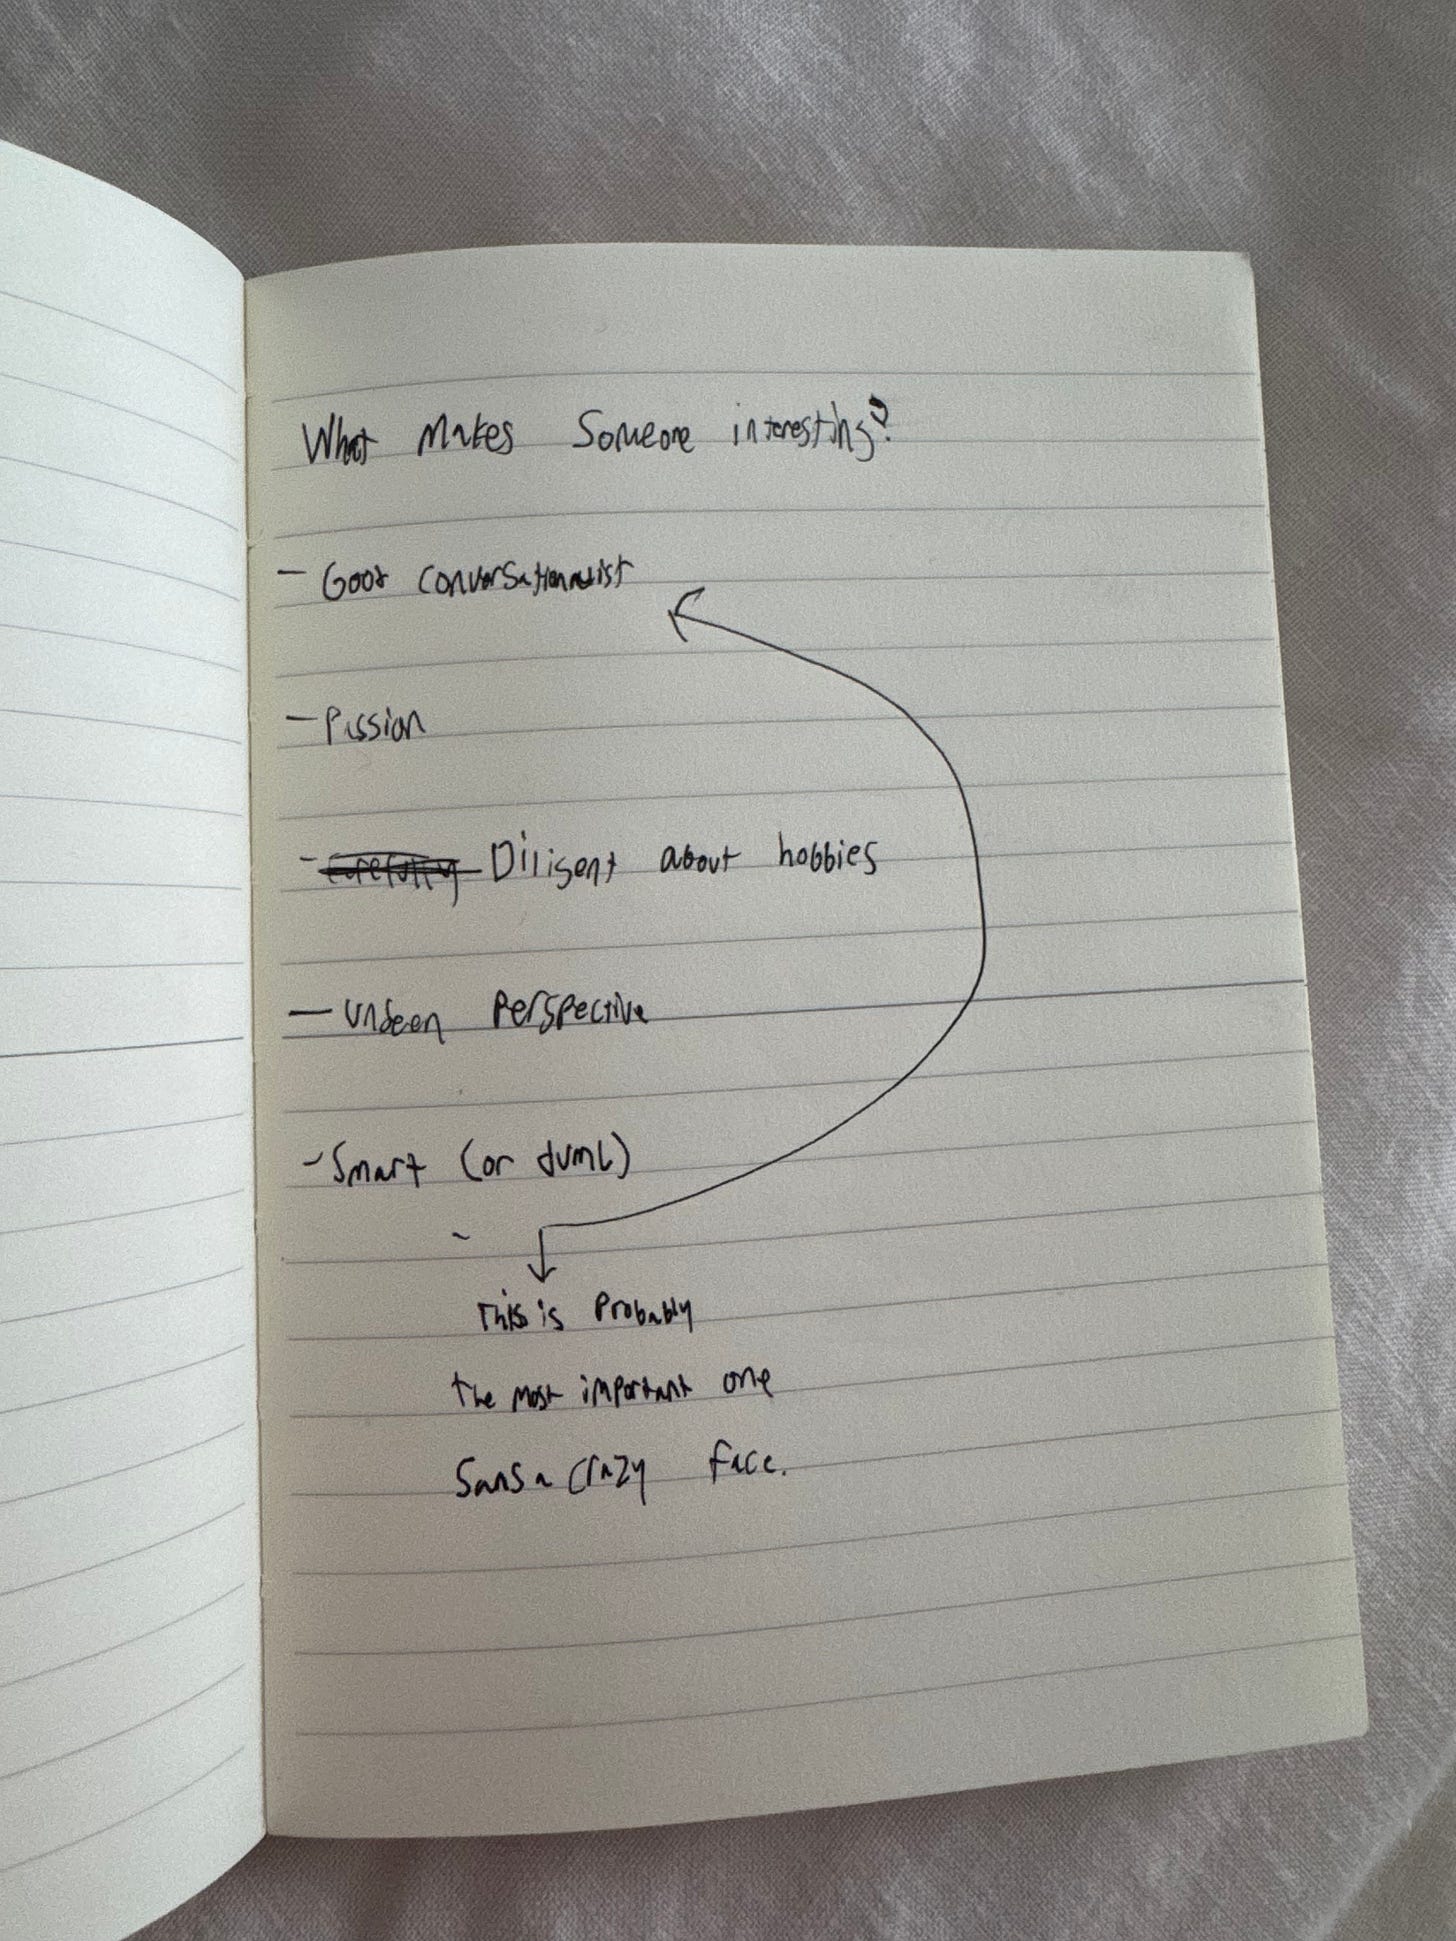 What makes someone interesting?
- Good conversationalist
- Passion
- Diligent about hobbies
- Unseen Perspective
- Smart (or dumb)
This is Probably
the most important one
Sans a crazy face.